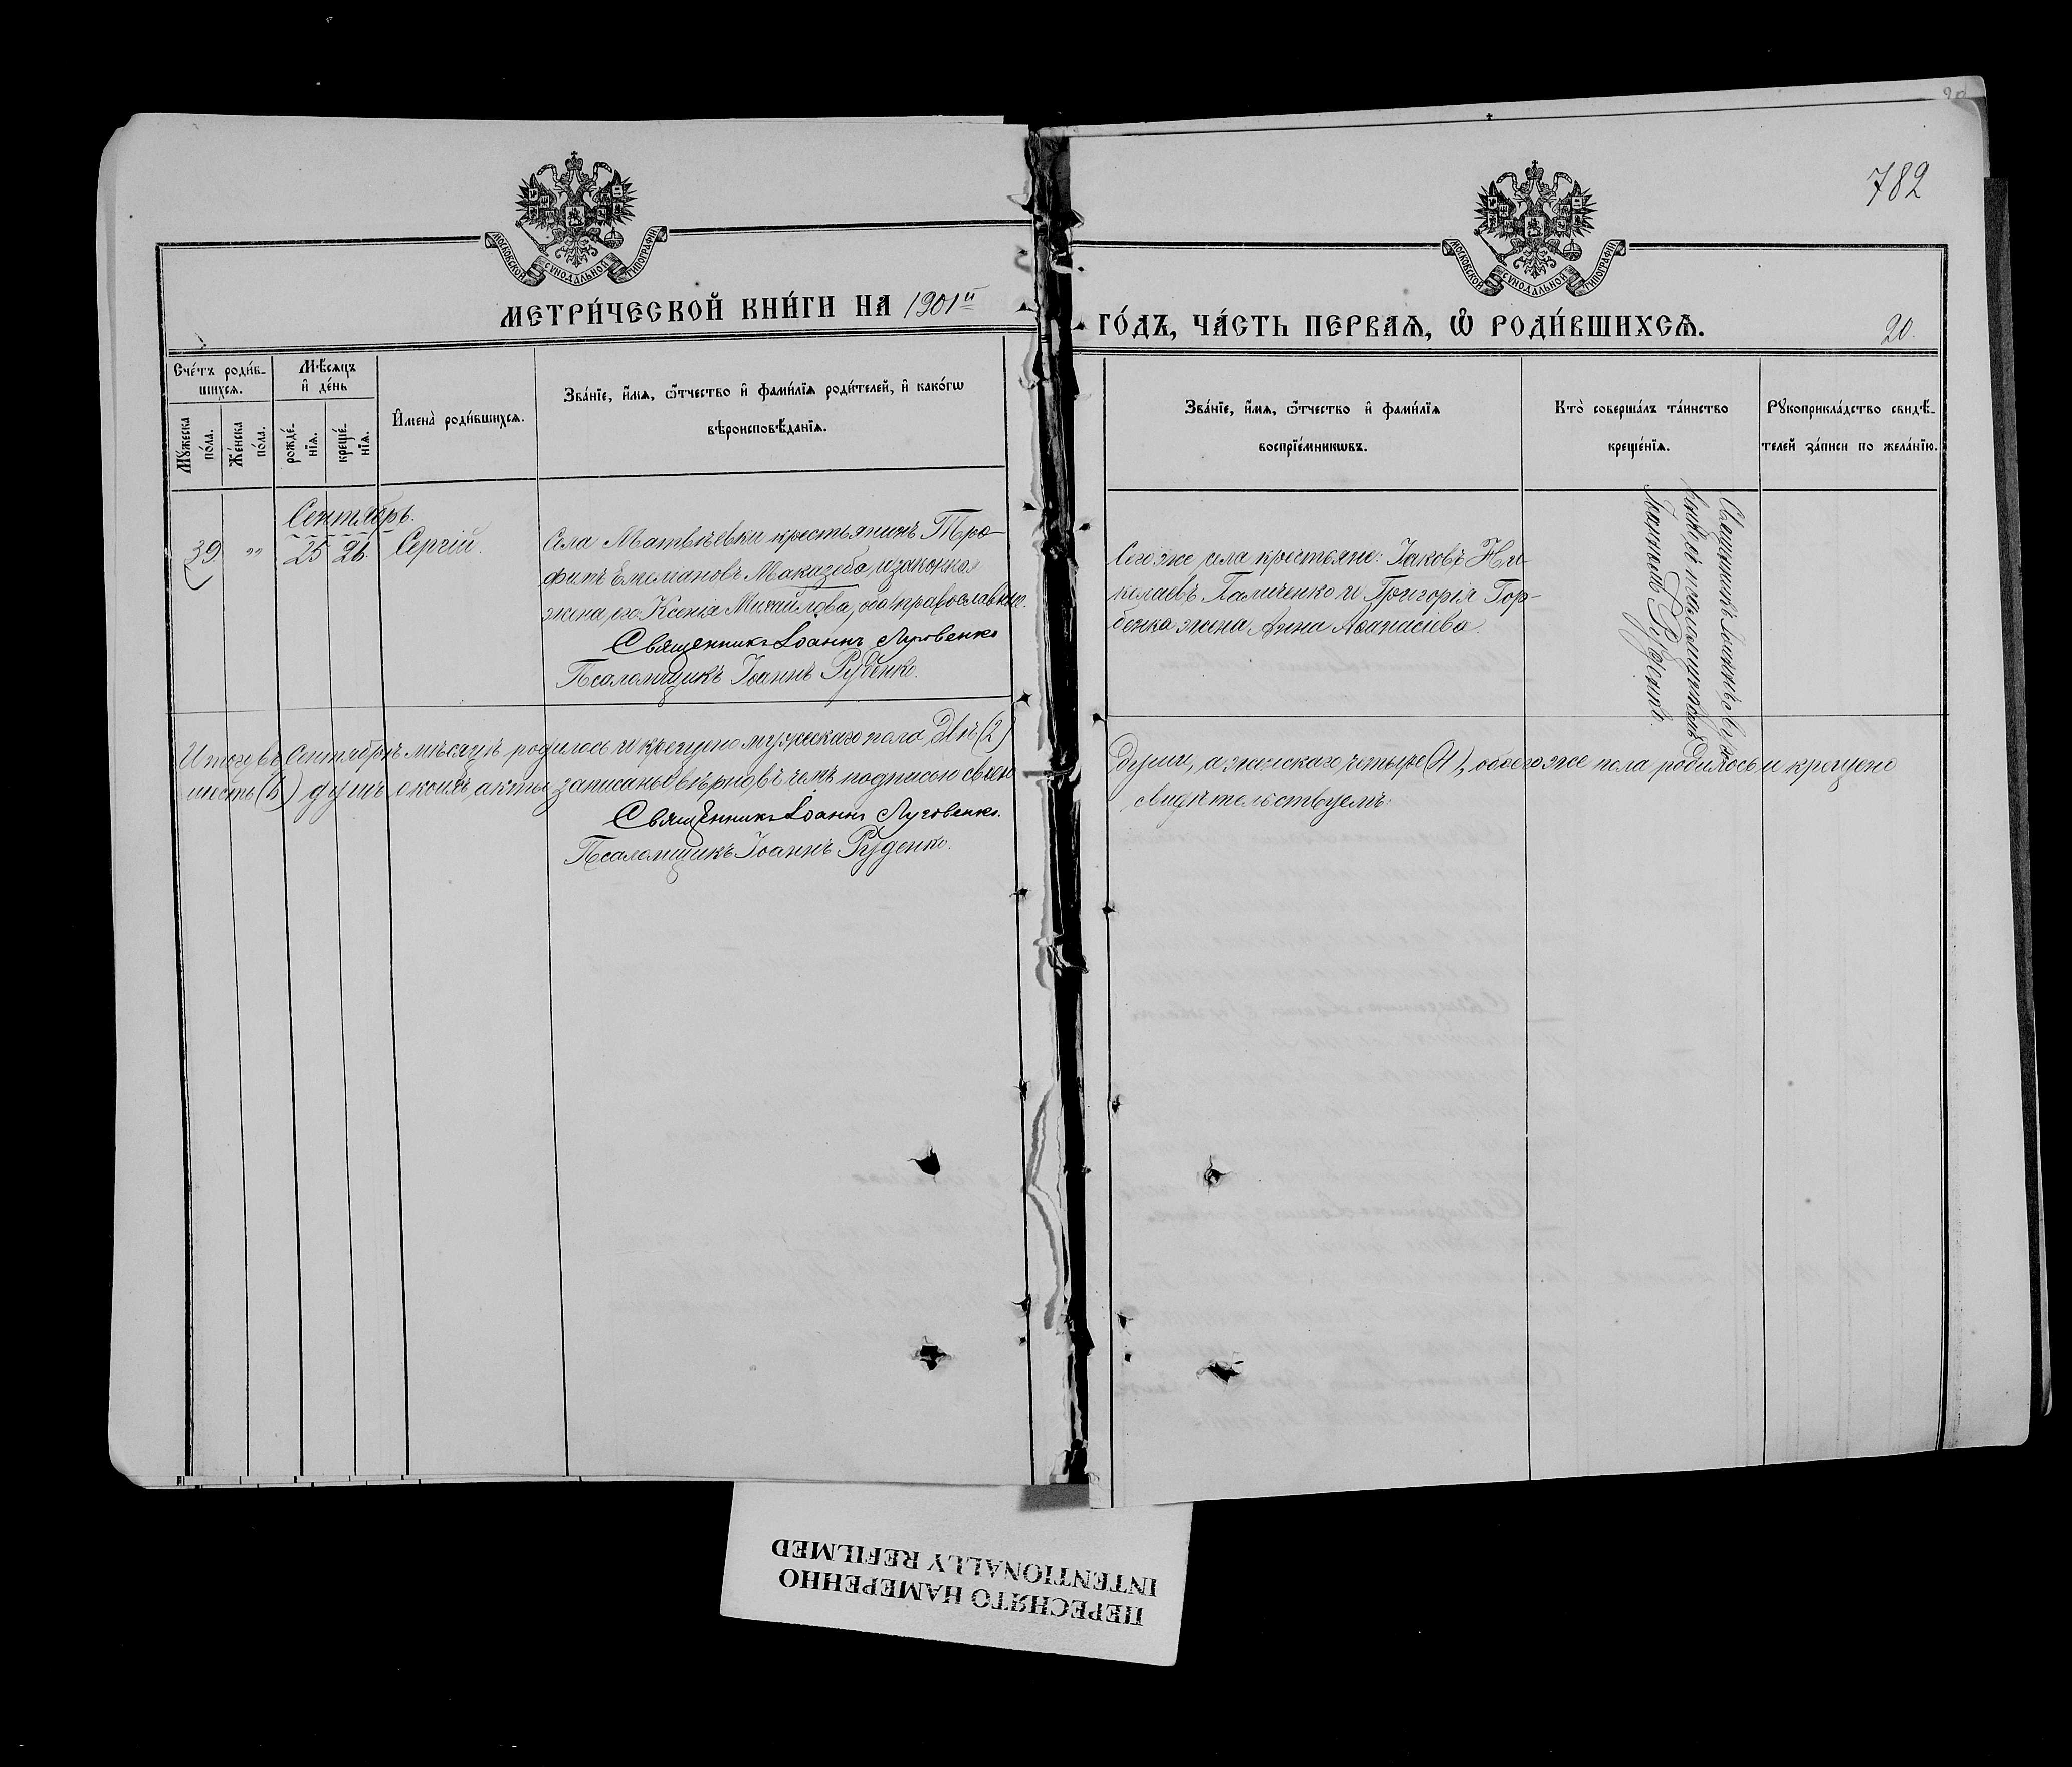 782
МОСКОВСКОЙ СУНОДАЛЬНОЙ ТИПОГРАФІИ
МОСКОВСКОЙ СУНОДАЛЬНОЙ ТИПОГРАФІИ
МЕТРИ́ЧЕСКОЙ КНИ́ГИ НА 1901й
ГО́ДЪ, ЧА́СТЬ ПЕРВАЯ, Ѽ РОДИ́ВШИХСѦ.
20.
Сче́тъ роди́в-
шихсѧ.
Мꙋ́жеска
по́ла.
Же́нска
по́ла.
Мѣ́сѧцъ
и҆ де́нь
рожде́-
нїѧ.
креще́-
нїѧ.
И҆мена̀ роди́вшихсѧ.
Зва́нїе, и҆́мѧ, ѻ҆́тчество и҆ фами́лїѧ роди́телей, и҆ како́гѡ
вѣроисповѣ́данїѧ.
Зва́нїе, и҆́мѧ, ѻ҆́тчество и҆ фами́лїѧ
воспрїе́мникѡвъ.
Кто̀ соверша́лъ та́инство
креще́нїѧ.
Рꙋкоприкла́дство свидѣ́-
телей за́писи по жела́нїю.
Сентябрь.
39. „ 25 26. Сергій.
Села Матвѣевки крестьянинъ Тро-
фимъ Емеліановъ Макидеба, и законная
жена его Ксенія Михайлова, оба православные.
Священникъ Іоаннъ Луговенко
Псаломщикъ Іоаннъ Руденко.
Сего же села крестьяне: Іаковъ Ни-
колаевъ Паличенко и Григорія Гор-
бенка жена Анна Аѳанасіева.
Священникъ Іоаннъ
съ псаломщикомъ
Іоанномъ Руденко.
Итого въ Сентябрѣ мѣсяцѣ родилось и крещено мужескаго пола Двѣ (2)
души, а женскаго четыре (4), обоего же пола родилось и крещено
шесть (6) душъ, о коихъ акты записаны вѣрно въ чемъ подписью своею
свидѣтельствуемъ:
Священникъ Іоаннъ Луговенко.
Псаломщикъ Іоаннъ Руденко.
ПЕРЕСНЯТО НАМЕРЕННО
INTENTIONALLY REFILMED